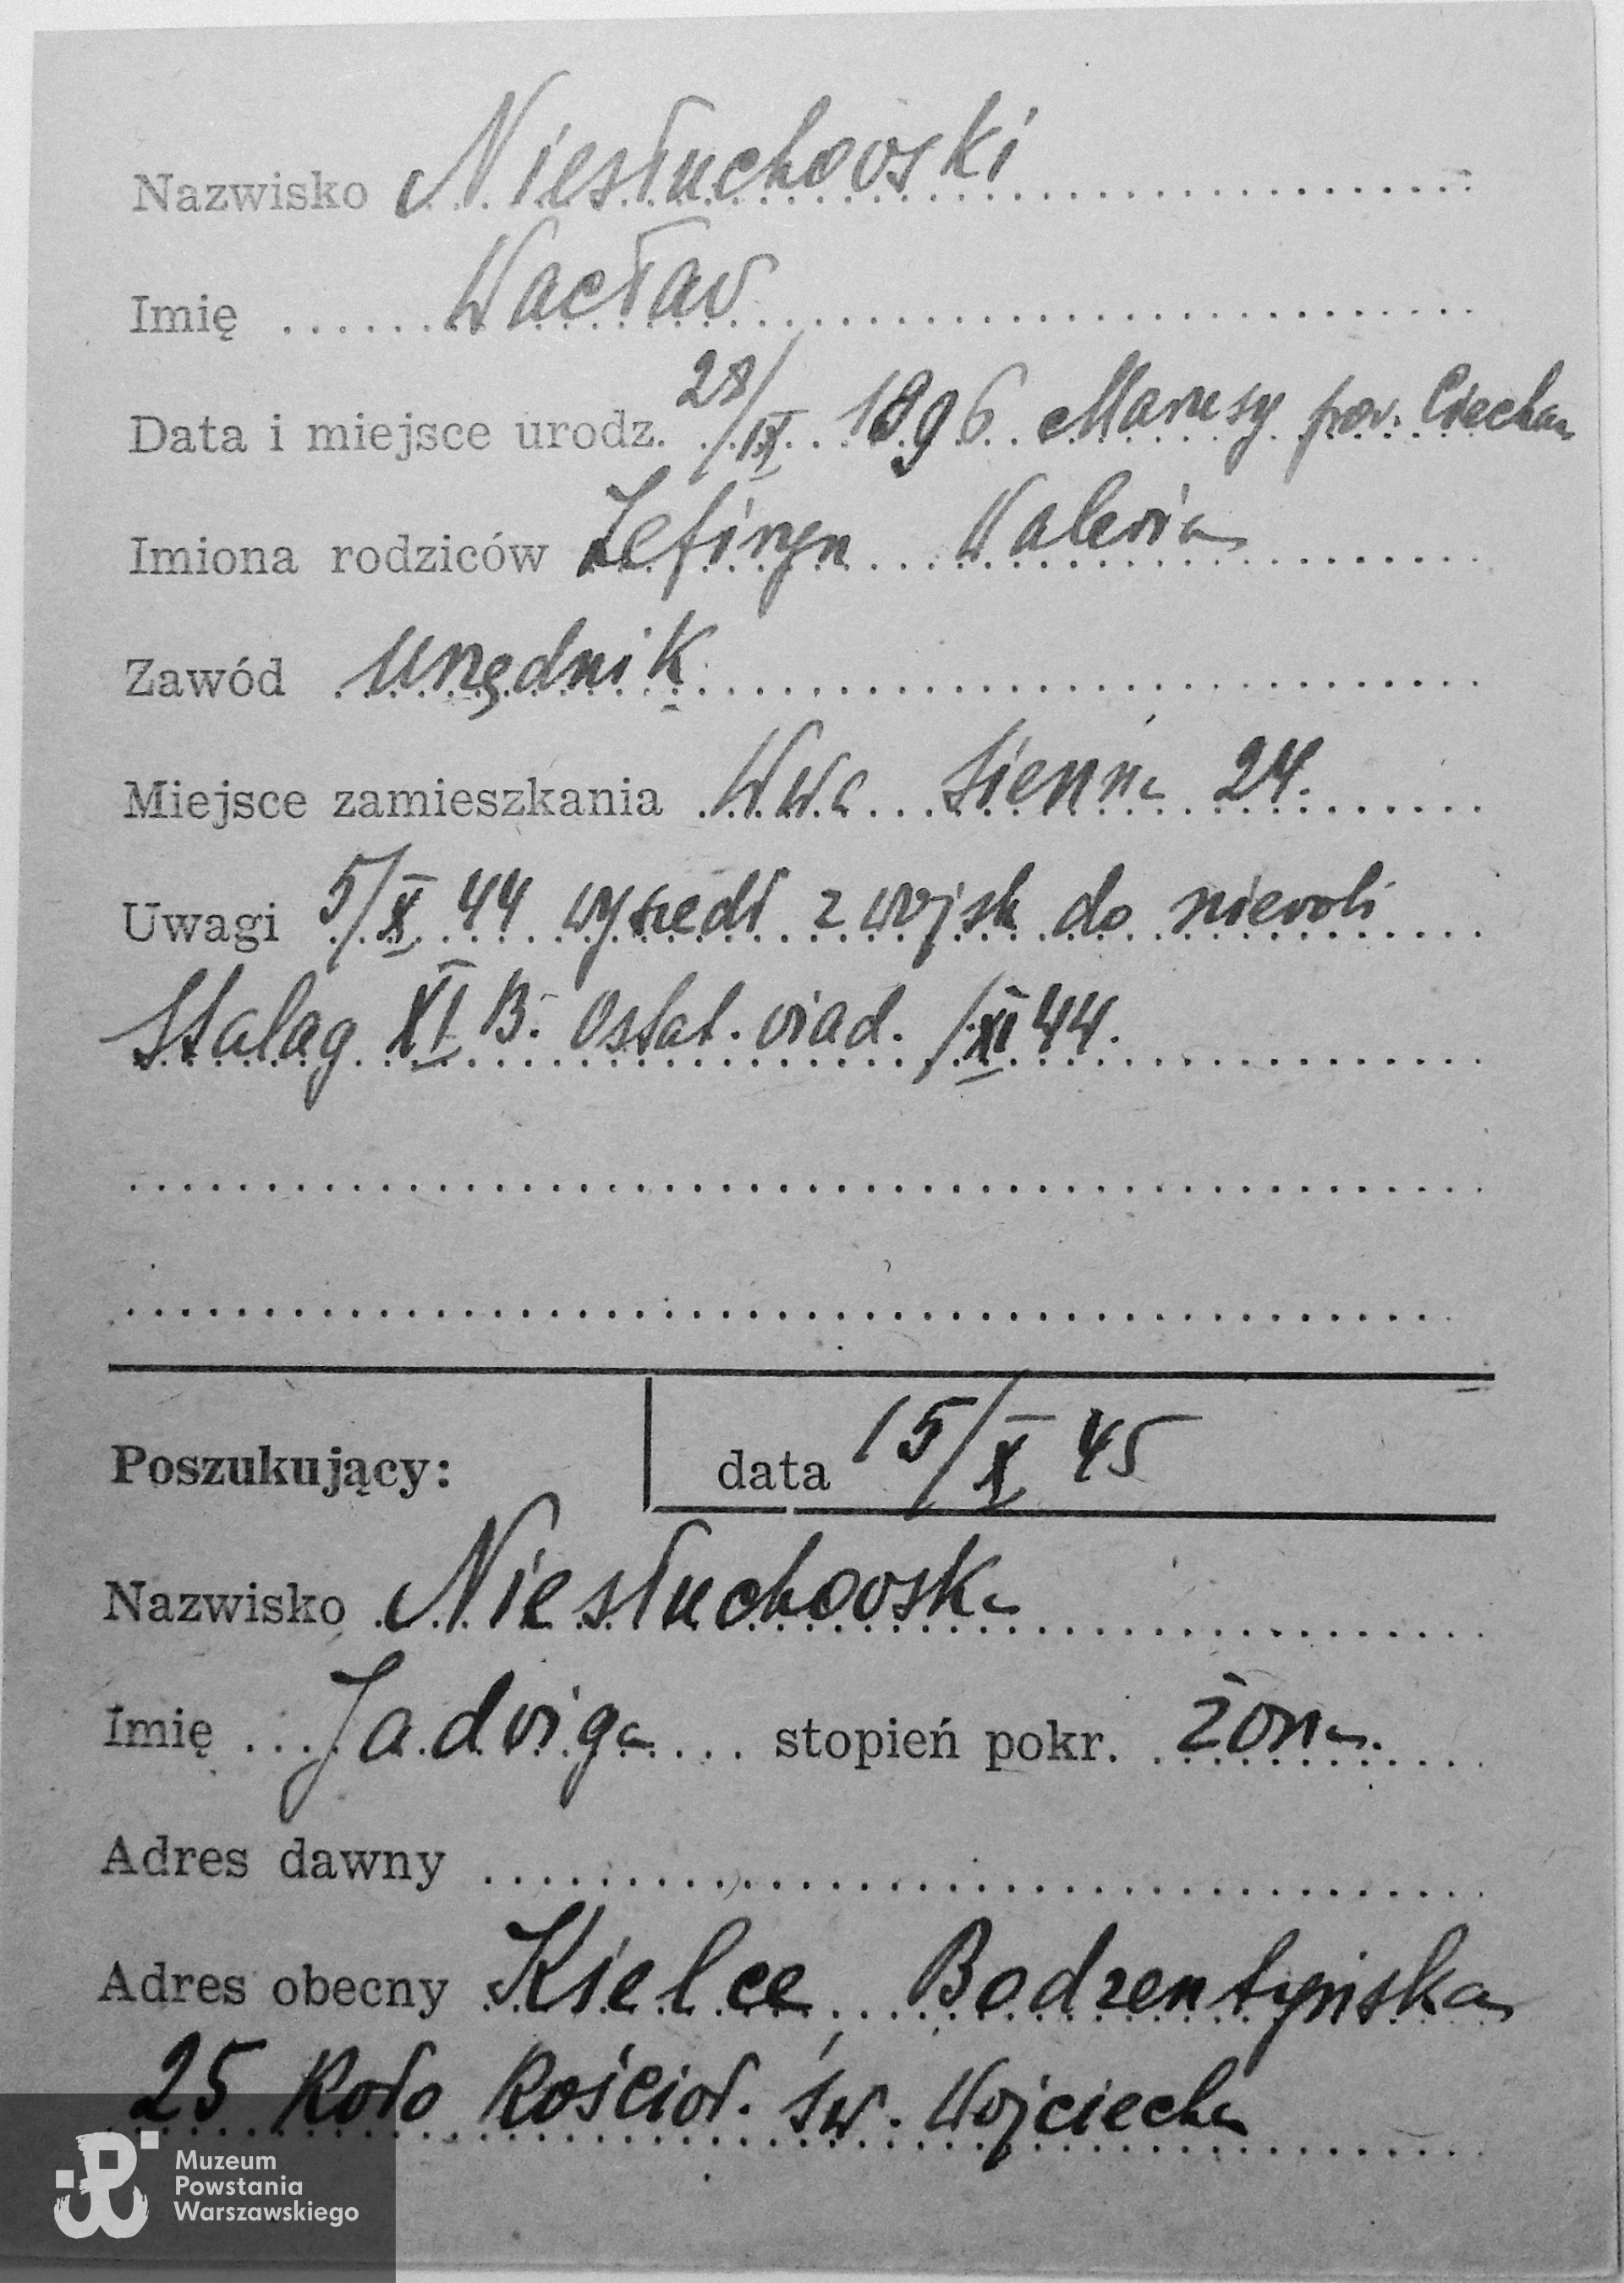 Nazwisko Niesłuchowski
Imię Wacław
Data i miejsce urodz. 28/IX 1896 pow. Ciechan
Imiona rodziców Zefiryn Waleria
Zawód urzędnik
Miejsce zamieszkania Wwa Sienna 24.
Uwagi 5/X 44 wyszedł z wojsk do niewoli
Stalag XI B. Ostat. wiad. /XI 44.
Poszukujący: data 15/X 45
Nazwisko Niesłuchowska
Imię Jadwiga stopień pokr. żona.
Adres dawny
Adres obecny Kielce, Bodzentyńska
25 koło kościoł. św. Wojciecha
Muzeum
Powstania
Warszawskiego